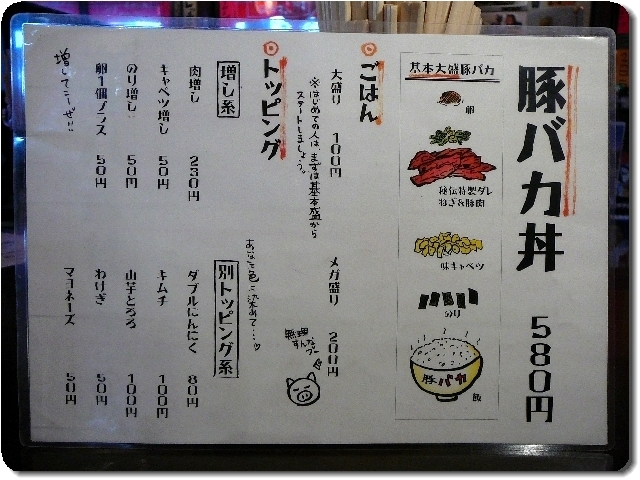 豚バカ丼 580円
基本大盛豚バカ
卵
秘伝特製ダレ
ねぎ&豚肉
味キャベツ
のり
豚バカ
飯
ごはん
大盛り 100円
メガ盛り 200円
※はじめての人は、まずは基本盛から
スタートしましょう。
無理
すんなブー
トッピング
増し系
肉増し 230円
キャベツ増し 50円
のり増し 50円
卵1個プラス 50円
増してこーぜ!!
あなた色に染めて…♡
別トッピング系
ダブルにんにく 80円
キムチ 100円
山芋とろろ 100円
わけぎ 50円
マヨネーズ 50円